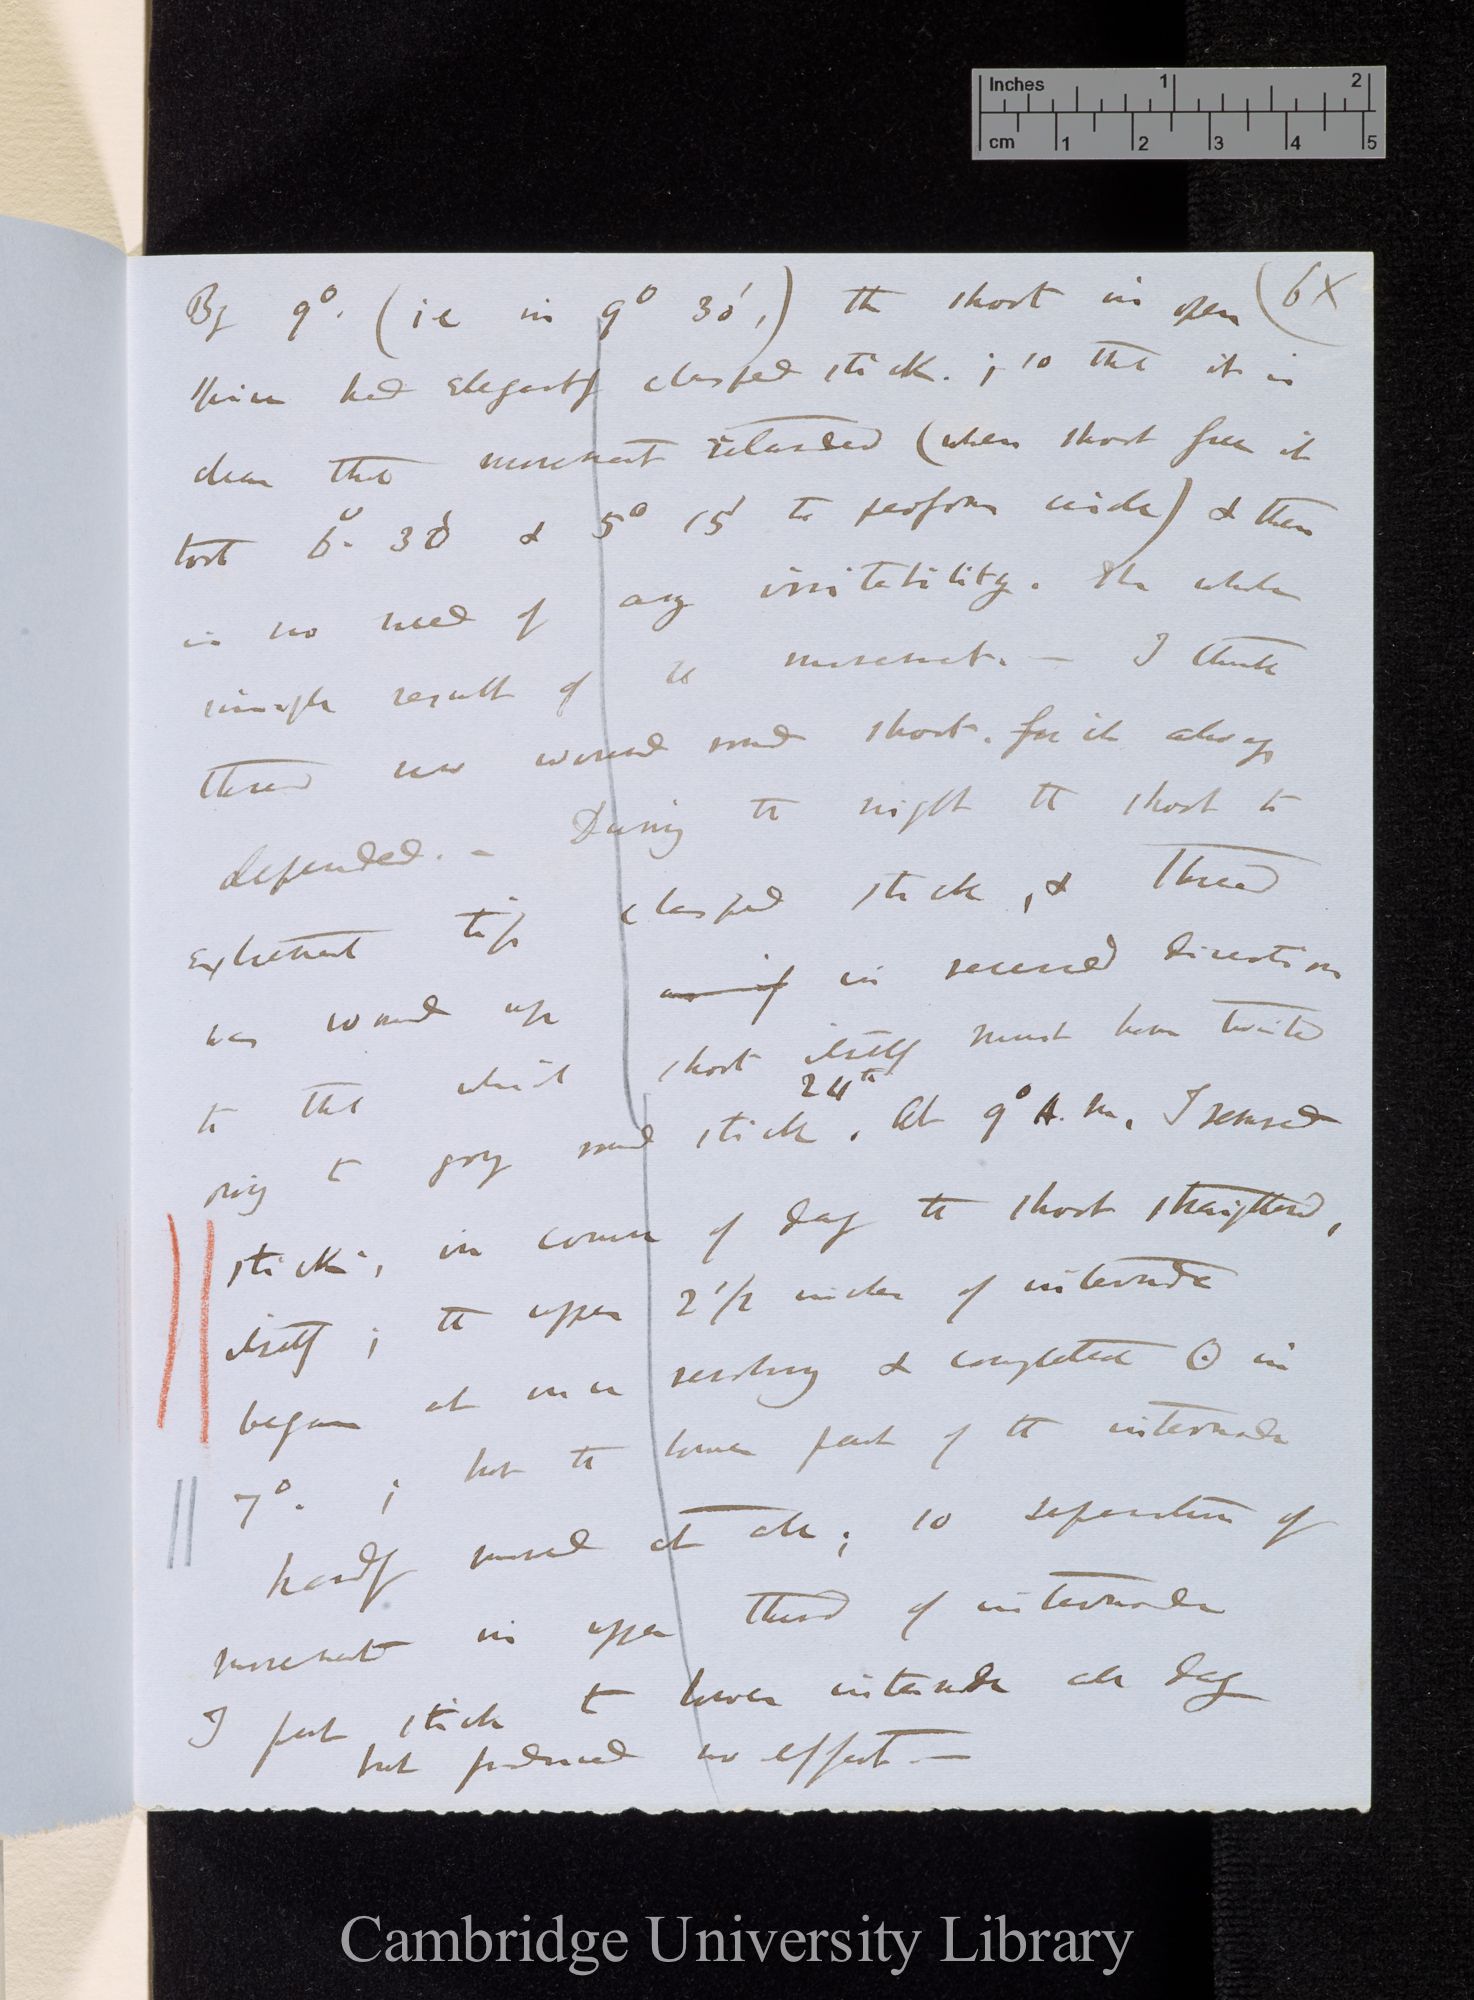 Inches 1 2
cm 1 2 3 4 5
(6 X
By 9°. (ie in 9° 30',) the shoot in open
spire had elegantly clasped stick. ; so that it is
clear that movement retarded (when shoot free it
took 6°. 30' & 5° 15' to perform circle) & there
is no need of any irritability. The whole
simple result of the movement. — I think
thread now wound round shoot. for it always
depended. — During the night the shoot to
extremest tip clasped stick, & thread
was wound up in reversed direction
to that which shoot itself must have twisted
owing to going round stick. At 9° A.m. I removed
24th
stick, in course of day the shoot straightened,
itself ; the upper 2 1/2 inches of internode
began at once revolving & completed ⊙ in
7°. ; but the lower part of the internode
hardly moved at all ; so separation of
movement in upper third of internode
I put stick to lower internode all day
but produced no effect. —
Cambridge University Library